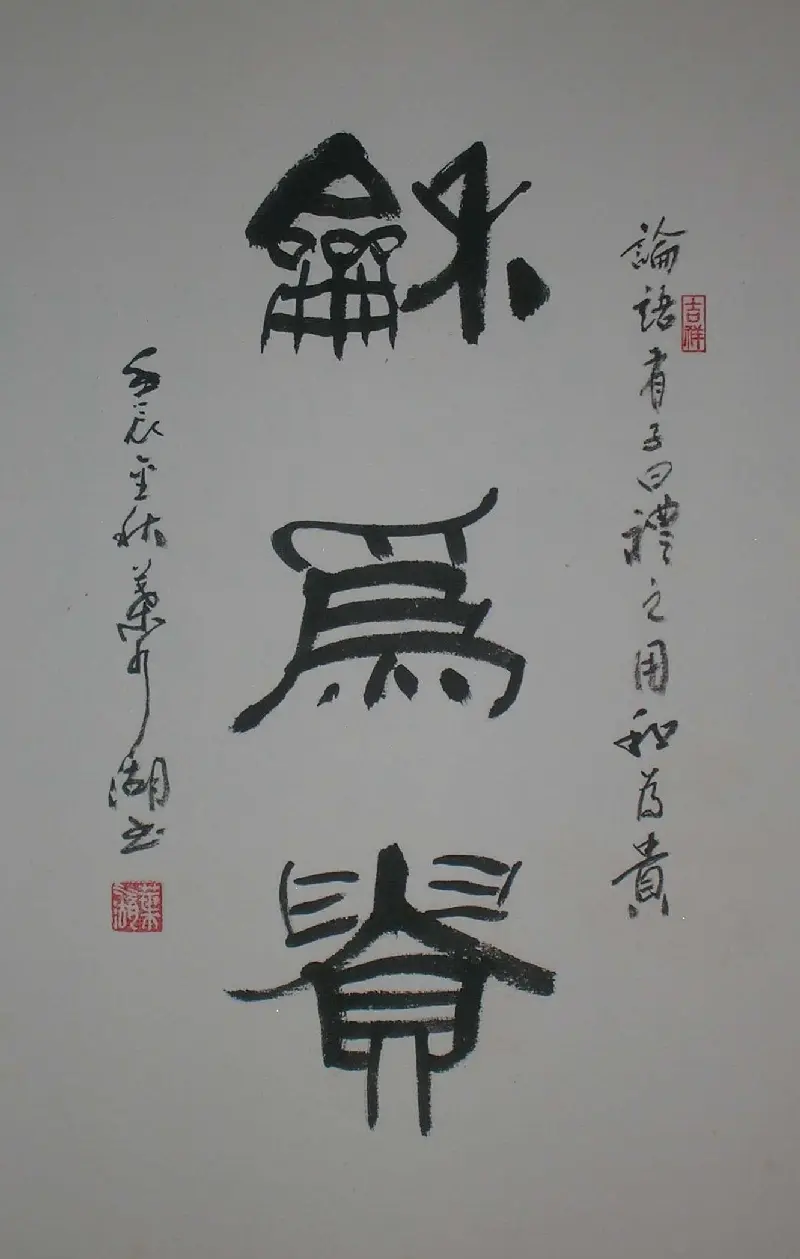 論語有子曰禮之用和為貴
吉祥
龢爲貴
壬辰金秋葉湖书